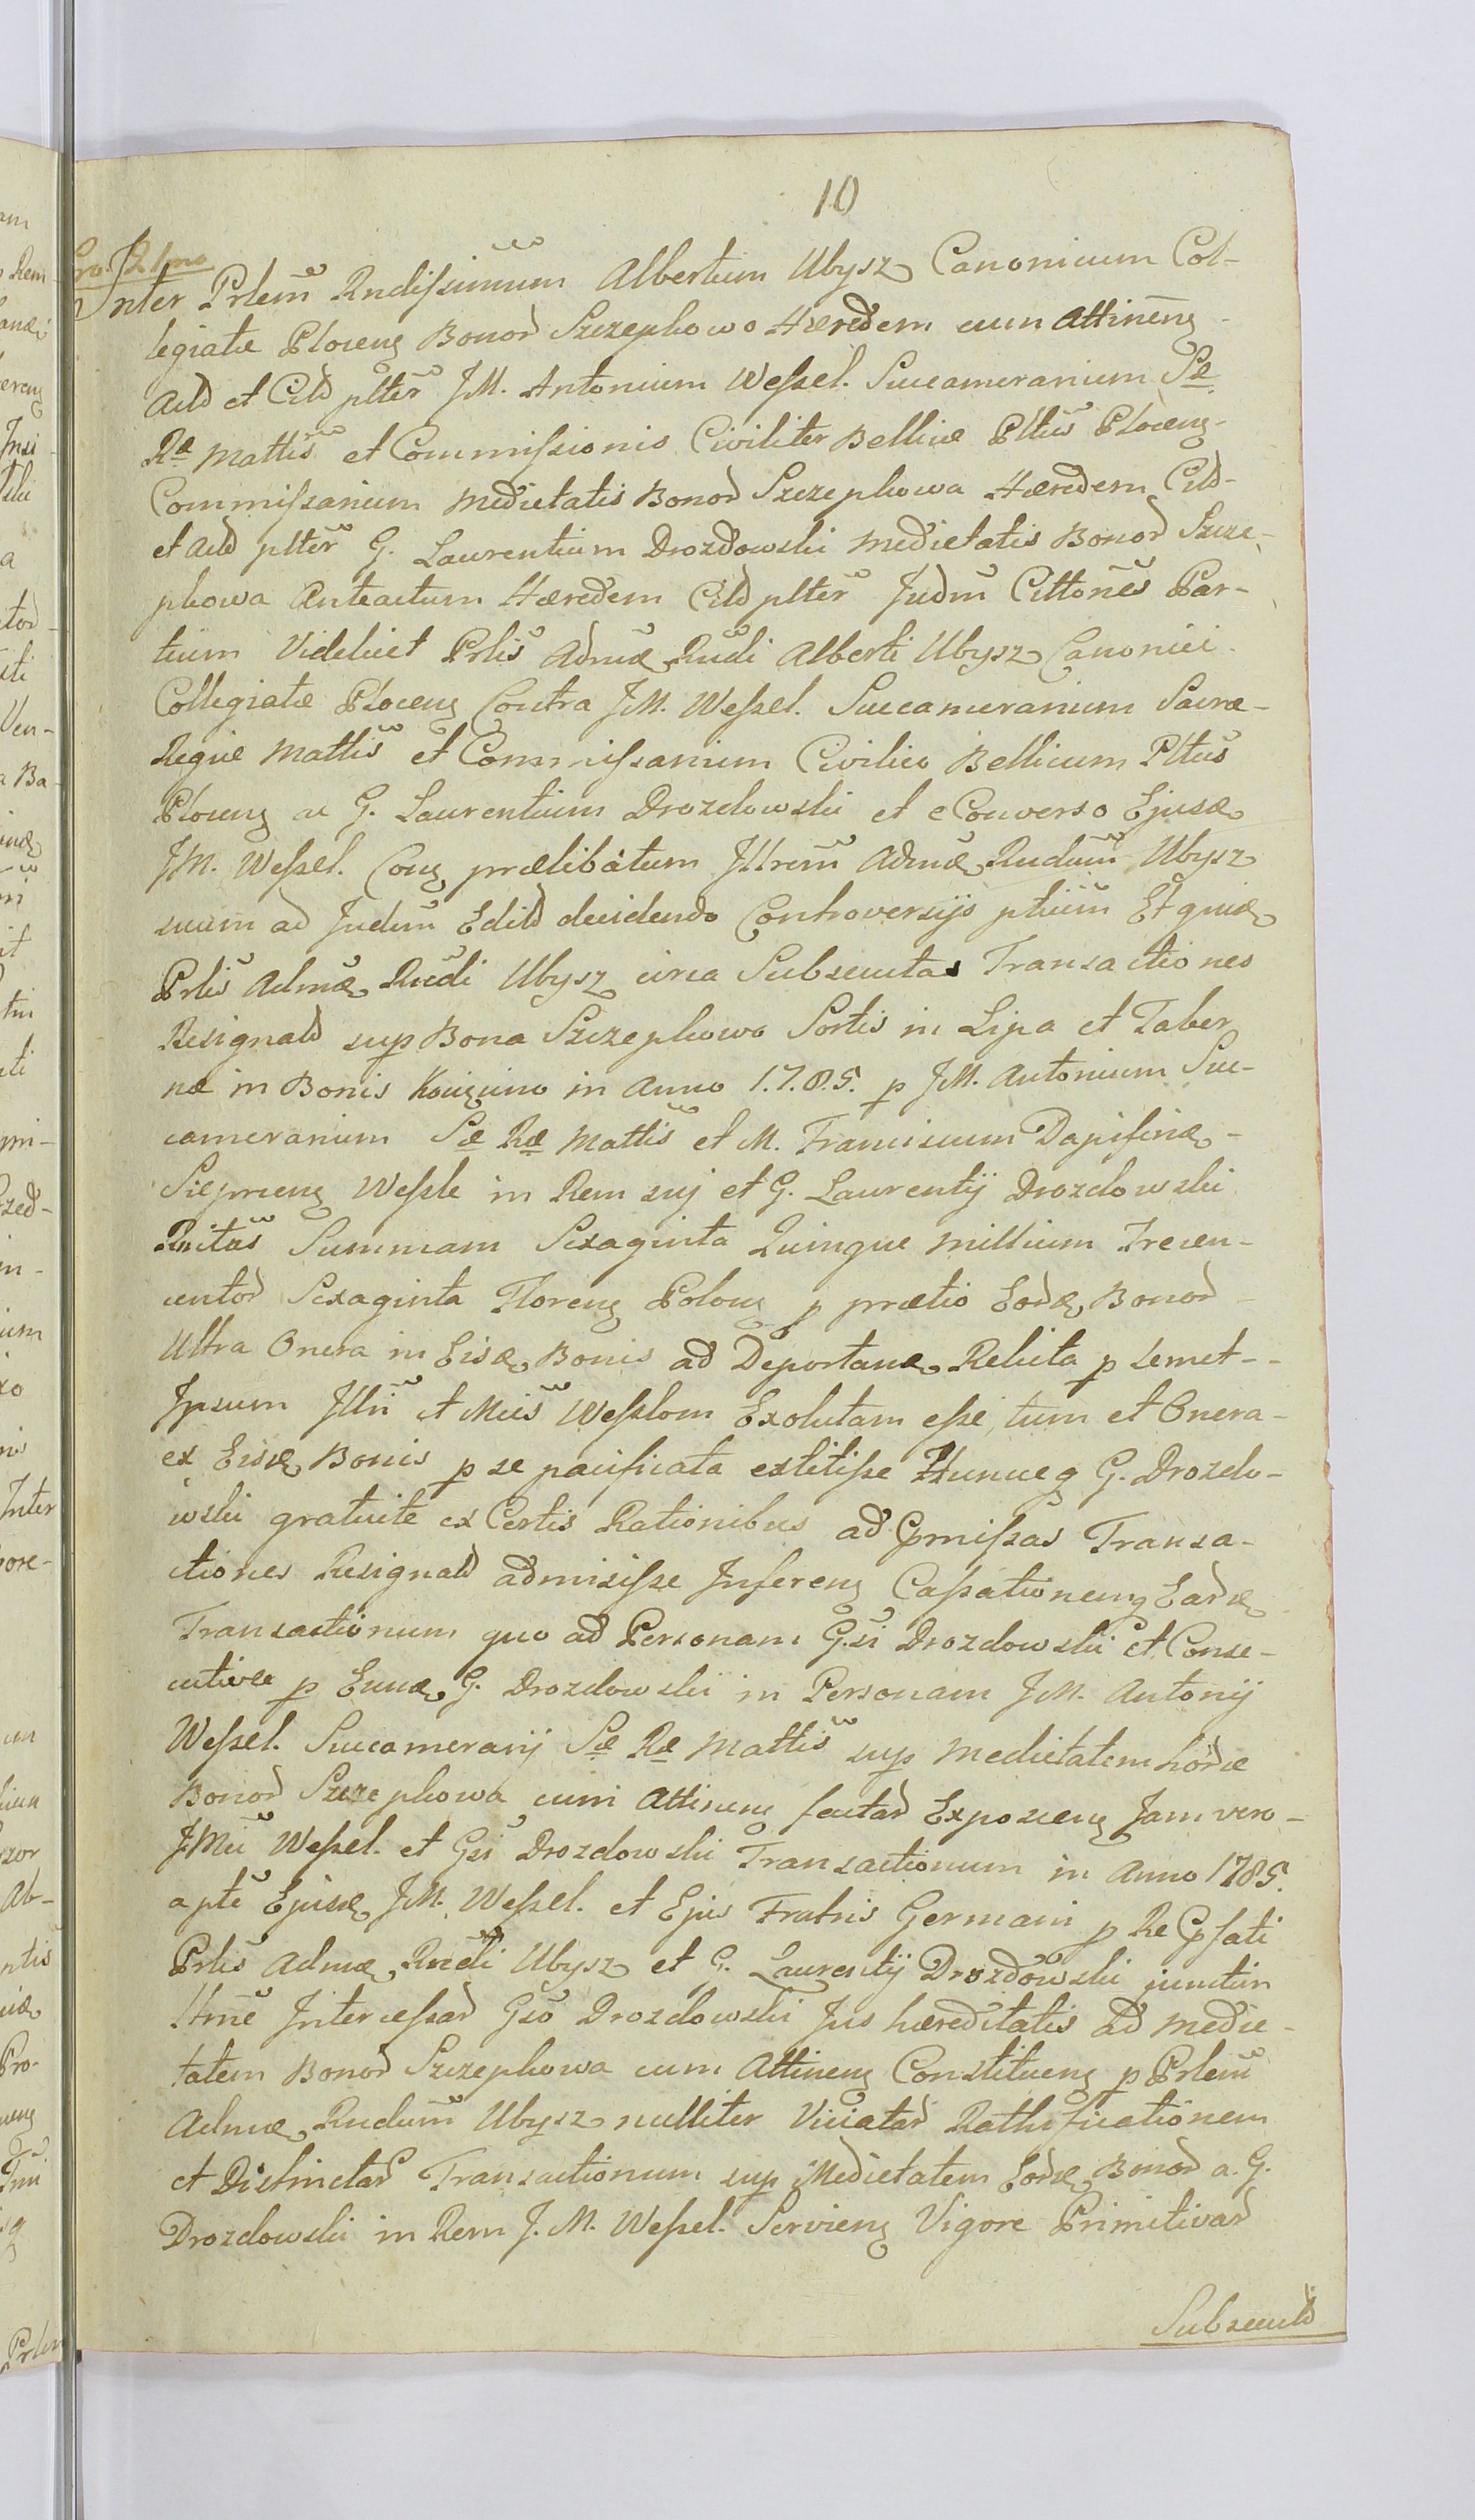 10
Inter Prlem̃ Rndissimum Albertum Ubysz Canonicum Col-
legiatæ Plocen̄ Bonor̄ Szczepkowo Hæredem cum Attinen̄
Actd et Citd plter̃ JM. Antonium Wessel. Succameranium Sæ
Ræ Mattis̃ et Commissionis Civiliter Bellicæ Pltus̃ Plocen̄-
Commissarium Medietatis Bonor̄ Szczepkowa Hæredem Citd-
et Actd plter̃ G. Laurentium Drozdowski Medietatis Bonor̄ Szcze-
pkowa Anteactum Hæredem Citd plter̃ Judm̃ Cittones̃ Par-
tium Videlicet Prlis̃ Admæ Rndi Alberti Ubysz Canonici
Collegiatæ Plocen̄ Contra JM. Wessel. Succameranium Sacræ-
Regiæ Mattis̃ et Commissarium Civilico Bellicum Pltus̃
Plocen̄ ac G. Laurentium Drozdowski et e Converso Ejusæ
JM. Wessel. Con̄ prælibatum Jllrem̃ Admæ Rndum̃ Ubysz
suum ad Judm̃ Editd decidendo Controversijs ptium̃ Et quiæ
Prlis̃ Admæ Rndi Ubysz circa Subsecutas Transactiones
Resignatd sup Bona Szczepkowo Sortis in Lipa et Taber
næ in Bonis in Anno 1.7.8.5. p JM. Antonium Suc-
cameranium Sæ Ræ Mattis̃ et M. Franciscum Dapiferæ-
Sieprcen̄ Wessle in Rem suj et G. Laurentij Drozdowski
Rnitas̃ Summam Sexaginta Quinque millium Trecen-
centor̄ Sexaginta Floren̄ Polon̄ p prætio Eordæ Bonor̄
Ultra Onera in Eisdæ Bonis ad Deportanæ Relicta p semet--
Jpsum Jlln̄ et Mcis̃ Wesslom Exolutam esse, tum et Onera-
ex Eisdæ Bonis p se pacificata extitisse Huncq G. Drozdo-
wski gratuite ex Certis Rationibus ad Pmissas Transa-
ctiones Resignatd admisisse Inferen̄ Cassationemq Eardæ
Transactionum quo ad Personam G.si Drozdowski et Conse-
cutivæ p Eunæ G. Drozdowski in Personam JM. Antonij
Wessel. Succameranij Sæ Ræ Mattis̃ sup Medietatem hordæ
Bonor̄ Szczepkowa cum Attinen̄ factar̄ Exposcen̄ Jam vero-
JMci Wessel. et Gsi Drozdowski Transactionum in Anno 1785.
a pte Ejusdæ JM. Wessel. et Ejus Fratris Germani p Re Pfati
Prlis̃ Admæ Rndi Ubysz et G. Laurentij Drozdowski junctim
Jntercessar̄ Gso Drozdowski Jus hæreditatis ad medie-
tatem Bonor̄ Szczepkowa cum Attinen̄ Constituen̄ p Prlem̃
Admæ Rndum̃ Ubysz nulliter Viciatar̄ Rathificationem
et Distinctar̄ Transactionum sup Medietatem Eordæ Bonor̄ a. G.
Drozdowski in Rem J. M. Wessel. Servien̄ Vigore Primitivar̄
Subsecutd